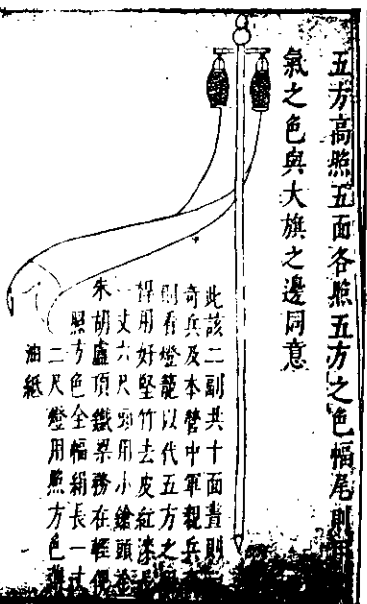 五方高照五面各照五方之色幅尾則用
氣之色與大旗之邊同意
此該二副共十面晝則
奇兵及本營中軍親兵
則看燈籠以代五方之
桿用好堅竹去皮紅漆
一丈六尺頭用小繪頭
朱胡盧頂鐵界務在輕便
照方色全幅絹長一丈
二尺燈用照方色
油紙